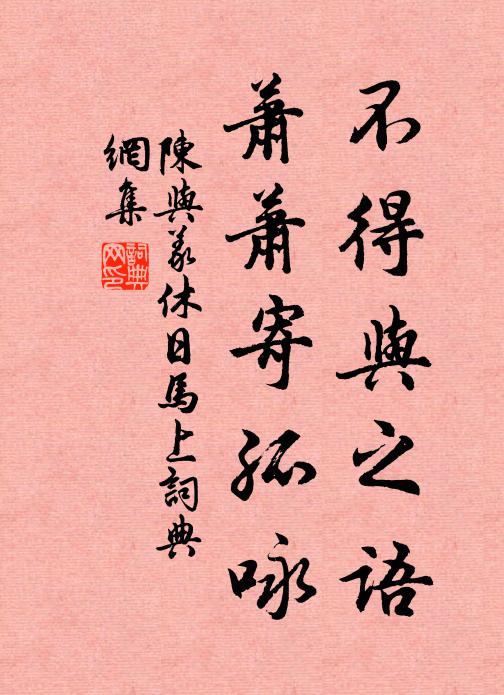 不得與之語
蕭蕭寄孤咏
陳與義休日馬上詞典
網集
詞典
网印